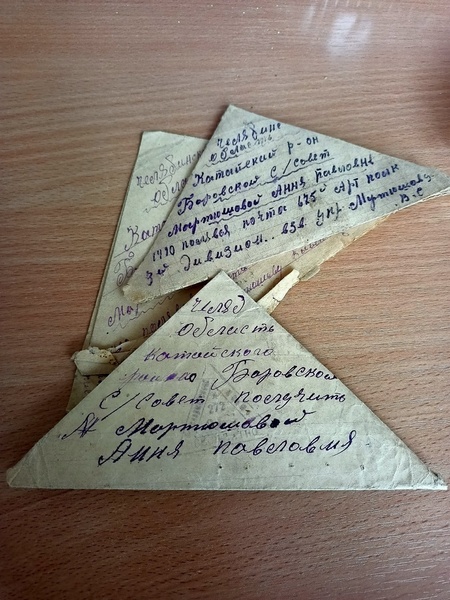 Челябинс
Область
Катайский р-он
Боровской С/совет
Мартюшовой Анне павловне
1410 полевая почта 675й Арт полк
3й дивизион.. взв. упр. Мутюшов
В.С
Челябинс
Облас
Ката
Б
Мар
Челяб
Область
Катайского
Боровской
С/совет получить
Мартюшовой
Ання павловня